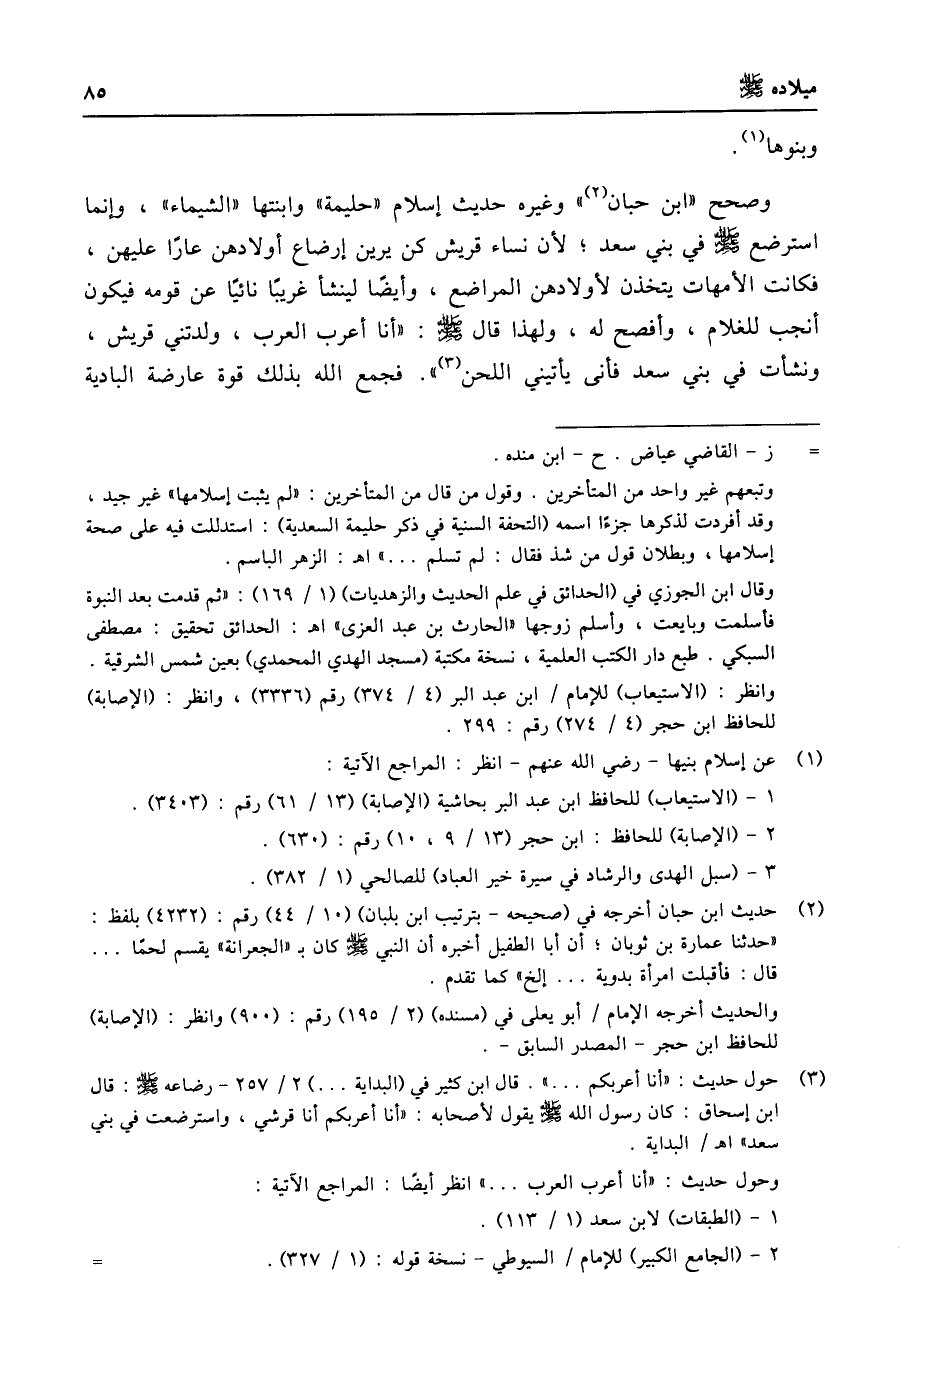 ميلاده ﷺ ٨٥
وبنوها(١) .
وصحح «ابن حبان(٢)» وغيره حديث إسلام «حليمة» وابنتها «الشيماء» ، وإنما
استرضع ﷺ في بني سعد ؛ لأن نساء قريش كن يرين إرضاع أولادهن عارًا عليهن ،
فكانت الأمهات يتخذن لأولادهن المراضع ، وأيضًا لينشأ غريبًا نائيًا عن قومه فيكون
أنجب للغلام ، وأفصح له ، ولهذا قال ﷺ : «أنا أعرب العرب ، ولدتني قريش ،
ونشأت في بني سعد فأنى يأتيني اللحن(٣)». فجمع الله بذلك قوة عارضة البادية
= ز - القاضي عياض . ح - ابن منده .
وتبعهم غير واحد من المتأخرين . وقول من قال من المتأخرين : «لم يثبت إسلامها» غير جيد ،
وقد أفردت لذكرها جزءًا اسمه (التحفة السنية في ذكر حليمة السعدية) : استدللت فيه على صحة
إسلامها ، وبطلان قول من شذ فقال : لم تسلم ...» اهـ : الزهر الباسم .
وقال ابن الجوزي في (الحدائق في علم الحديث والزهديات) (١ / ١٦٩) : «ثم قدمت بعد النبوة
فأسلمت وبايعت ، وأسلم زوجها «الحارث بن عبد العزى» اهـ : الحدائق تحقيق : مصطفى
السبكي . طبع دار الكتب العلمية ، نسخة مكتبة (مسجد الهدي المحمدي) بعين شمس الشرقية .
وانظر : (الاستيعاب) للإمام / ابن عبد البر (٤ / ٣٧٤) رقم (٣٣٣٦) ، وانظر : (الإصابة)
للحافظ ابن حجر (٤ / ٢٧٤) رقم : ٢٩٩ .
(١) عن إسلام بنيها - رضي الله عنهم - انظر : المراجع الآتية :
١ - (الاستيعاب) للحافظ ابن عبد البر بحاشية (الإصابة) (١٣ / ٦١) رقم : (٣٤٠٣) .
٢ - (الإصابة) للحافظ : ابن حجر (١٣ / ٩ ، ١٠) رقم : (٦٣٠) .
٣ - (سبل الهدى والرشاد في سيرة خير العباد) للصالحي (١ / ٣٨٢) .
(٢) حديث ابن حبان أخرجه في (صحيحه - بترتيب ابن بلبان) (١٠ / ٤٤) رقم : (٤٢٣٢) بلفظ :
«حدثنا عمارة بن ثوبان ؛ أن أبا الطفيل أخبره أن النبي ﷺ كان بـ «الجعرانة» يقسم لحمًا ...
قال : فأقبلت امرأة بدوية ... إلخ» كما تقدم .
والحديث أخرجه الإمام / أبو يعلى في (مسنده) (٢ / ١٩٥) رقم : (٩٠٠) وانظر : (الإصابة)
للحافظ ابن حجر - المصدر السابق - .
(٣) حول حديث : «أنا أعربكم ...» . قال ابن كثير في (البداية ...) ٢ / ٢٥٧ - رضاعه ﷺ : قال
ابن إسحاق : كان رسول الله ﷺ يقول لأصحابه : «أنا أعربكم أنا قرشي ، واسترضعت في بني
سعد» اهـ / البداية .
وحول حديث : «أنا أعرب العرب ...» انظر أيضًا : المراجع الآتية :
١ - (الطبقات) لابن سعد (١ / ١١٣) .
٢ - (الجامع الكبير) للإمام / السيوطي - نسخة قوله : (١ / ٣٢٧) . =